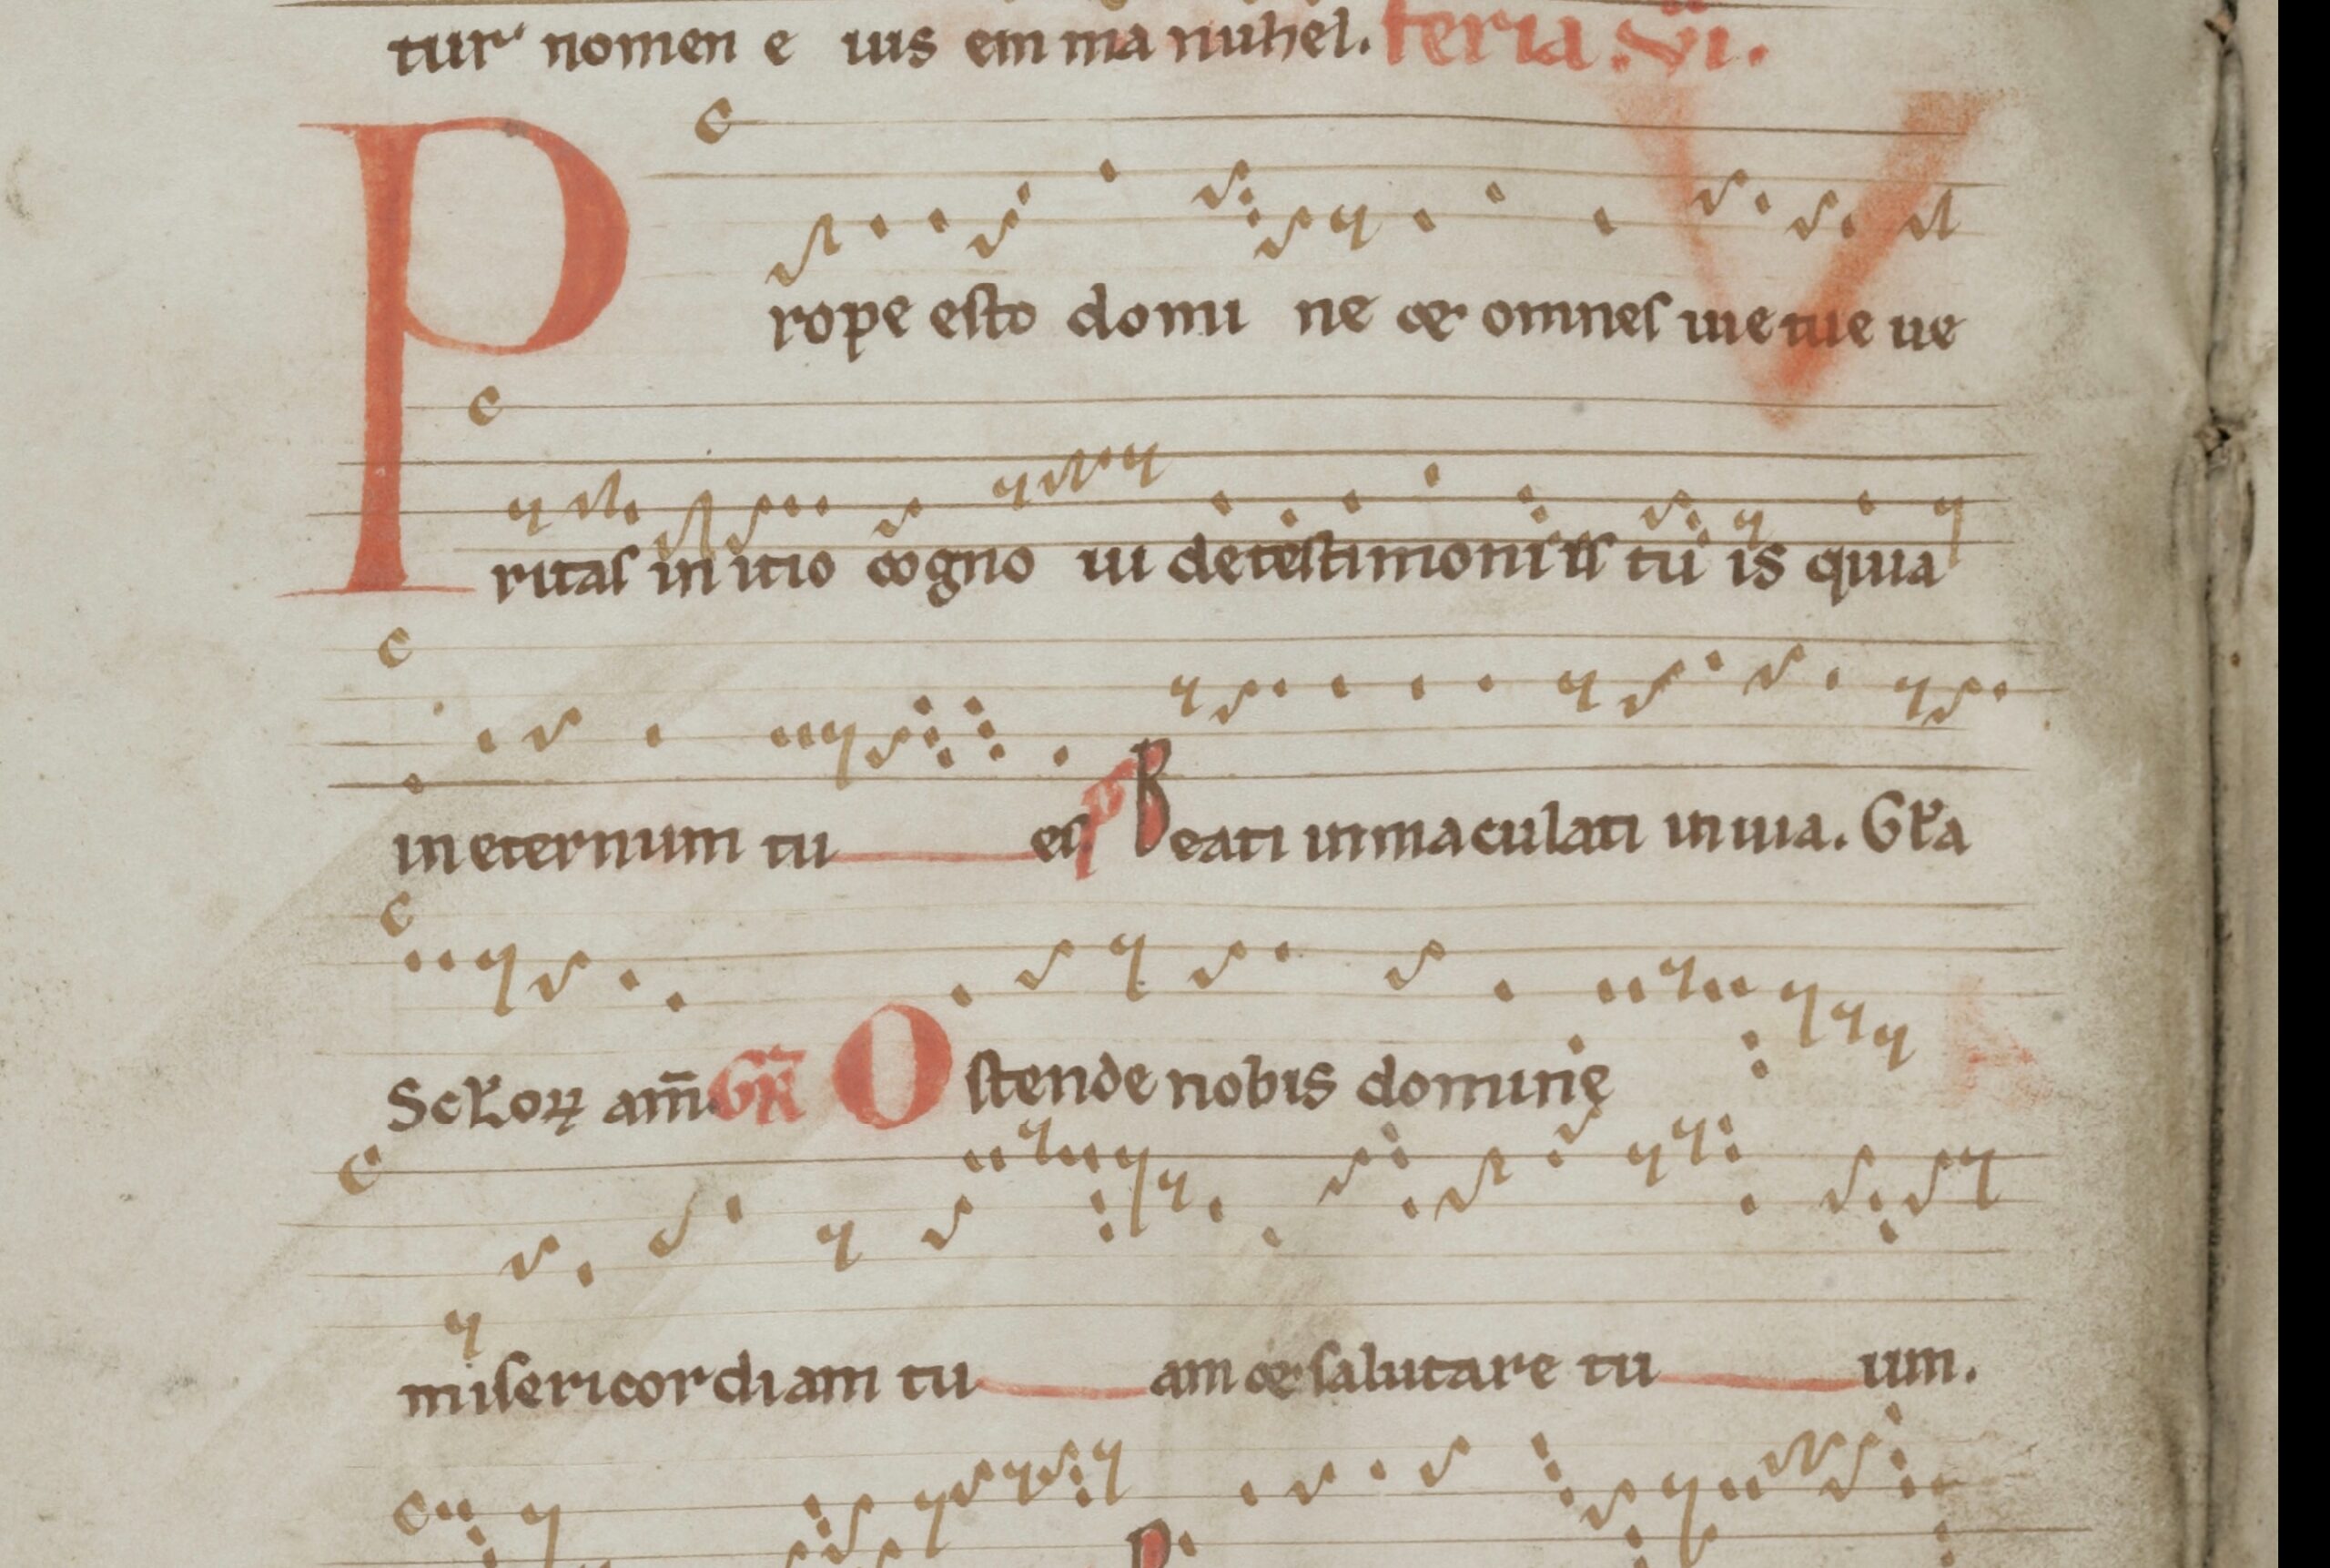 tur nomen e ius em ma nuhel. feria .vi.
Prope esto domi ne & omnes uie tue ue
ritas initio cogno ui de testimoniis tu is quia
in eternum tu es. ps Beati inmaculati in uia. Gła
Scloꝝ am̄. GR Ostende nobis domine
misericordiam tu am & salutare tu um.